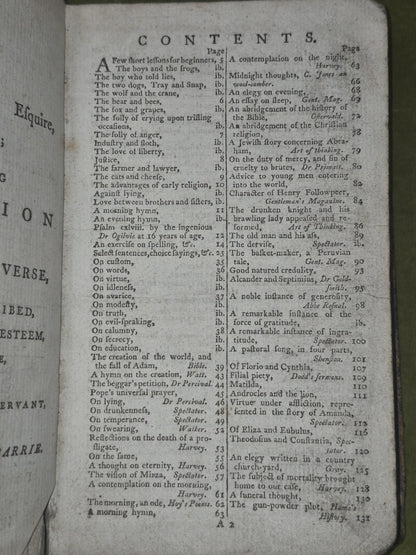 Esquire,
G
ION
VERSE,
IBED,
ESTEEM,
E,
ERVANT,
BARRIE.
CONTENTS.
Page
A Few short lessons for beginners, 5
The boys and the frogs, ib.
The boy who told lies, ib.
The two dogs, Tray and Snap, ib.
The wolf and the crane, ib.
The bear and bees, 6
The fox and grapes, ib.
The folly of crying upon trifling
occasions, ib.
The folly of anger, 7
Industry and sloth, ib.
The love of liberty, ib.
Justice, 8
The farmer and lawyer, ib.
The cats and cheese, 9
The advantages of early religion, 10
Against lying, ib.
Love between brothers and sisters, ib.
A morning hymn, 11
An evening hymn, ib.
Psalm cxlviii. by the ingenious
Dr Ogilvie at 16 years of age, 12
An exercise on spelling, &c. 14
Select sentences, choice sayings, &c. 23
On custom, 35
On words, 36
On virtue, ib.
On idleness, ib.
On avarice, 37
On modesty, ib.
On truth, ib.
On evil-speaking, ib.
On calumny, 38
On secrecy, ib.
On education, ib.
The creation of the world, and
the fall of Adam, Bible. 39
A hymn on the creation, Watt. 43
The beggar's petition, Dr Percival. 44
Pope's universal prayer, 45
On lying, Dr Percival. 46
On drunkenness, Spectator. 48
On temperance, Spectator. 49
On swearing, Watter. 52
Reflections on the death of a pro-
fligate, Harvey. 53
On the same, 55
A thought on eternity, Harvey. 56
The vision of Mirza, Spectator. 57
A contemplation on the morning,
Harvey. 61
The morning, an ode, Hoy's Poems. 62
A morning hymn, 63
A 2
Page
A contemplation on the night,
Harvey. 63
Midnight thoughts, C. Jones an
wool-comber. 66
An elegy on evening, 68
An essay on sleep, Gent. Mag. 69
An abridgement of the history of
the Bible, Osterwald. 72
An abridgement of the Christian
religion, 78
A Jewish story concerning Abra-
ham, Art of thinking. 79
On the duty of mercy, and sin of
cruelty to brutes, Dr Primatt. 80
Advice to young men entering
into the world, 82
Character of Henry Followpeer,
Gentleman's Magazine. 84
The drunken knight and his
brawling lady appeased and re-
formed, Art of Thinking. 86
The old man and his ass, 89
The dervise, Spectator. ib.
The basket-maker, a Peruvian
tale, Gent. Mag. 90
Good natured credulity, 93
Alcander and Septimius, Dr Gold-
smith. 95
A noble instance of generosity,
Abbe Reinal. 98
A remarkable instance of the
force of gratitude, ib.
A remarkable instance of ingra-
titude, Spectator. 100
A pastoral song, in four parts,
Shenston. 101
Of Florio and Cynthia, 107
Filial piety, Dodd's sermons. 109
Matilda, 110
Androcles and the lion, 111
Virtue under affliction, repre-
sented in the story of Amanda,
Spectator. 113
Of Eliza and Eubulus, 116
Theodosius and Constantia, Spec-
tator. 120
An elegy written in a country
church-yard, Gray. 125
The subject of mortality brought
home to our case, Harvey. 128
A funeral thought, 130
The gun-powder plot, Hume's
History. 131